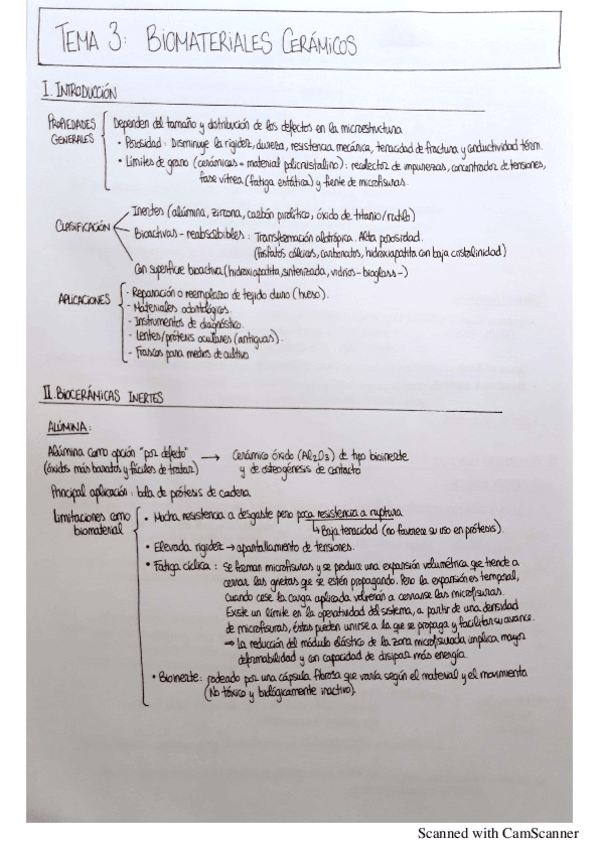 TEMA 3: BIOMATERIALES CERÁMICOS
I. INTRODUCCIÓN
PROPIEDADES GENERALES
Dependen del tamaño y distribución de los defectos en la microestructura
• Porosidad: Disminuye la rigidez, dureza, resistencia mecánica, tenacidad de fractura y conductividad térm.
• Límites de grano (cerámicas = material policristalino): recolector de impurezas, concentrador de tensiones,
fase vítrea (fatiga estática) y fuente de microfisuras.
CLASIFICACIÓN
Inertes (alúmina, zircona, carbón pirolítico, óxido de titanio/rutilo)
Bioactivas - reabsorbibles: Transformación alotrópica. Alta porosidad.
(fosfatos cálcicos, carbonatos, hidroxiapatita con baja cristalinidad)
Con superficie bioactiva (hidroxiapatita sinterizada, vidrios - bioglass -)
APLICACIONES
- Reparación o reemplazo de tejido duro (hueso).
- Materiales odontológicos.
- Instrumentos de diagnóstico.
- Lentes/prótesis oculares (antiguas).
- Frascos para medios de cultivo
II. BIOCERÁMICAS INERTES
ALÚMINA:
Alúmina como opción "por defecto" → Cerámico óxido (Al2O3) de tipo bioinerte
(óxidos más baratos y fáciles de tratar) y de osteogénesis de contacto
Principal aplicación: bola de prótesis de cadera
Limitaciones como biomaterial
• Mucha resistencia a desgaste pero poca resistencia a ruptura
↳ Baja tenacidad (no favorece su uso en prótesis).
• Elevada rigidez → apantallamiento de tensiones.
• Fatiga cíclica: Se forman microfisuras y se produce una expansión volumétrica que tiende a
cerrar las grietas que se estén propagando. Pero la expansión es temporal,
cuando cese la carga aplicada volverán a cerrarse las microfisuras.
Existe un límite en la operatividad del sistema, a partir de una densidad
de microfisuras, éstas pueden unirse a la que se propaga y facilitar su avance.
⇒ La reducción del módulo elástico de la zona microfisurada implica mayor
deformabilidad y con capacidad de disipar más energía.
• Bioinerte: rodeado por una cápsula fibrosa que varía según el material y el movimiento
(No tóxico y biológicamente inactivo).
Scanned with CamScanner